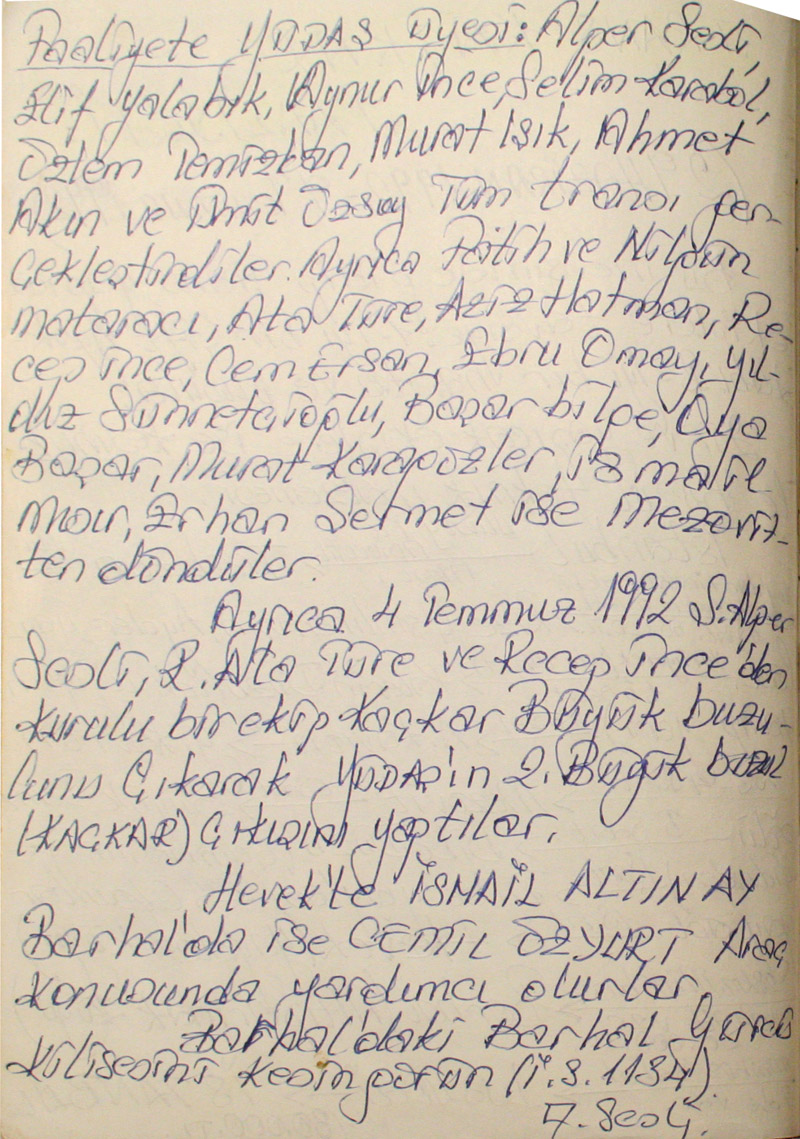 Faaliyete YÜDDAS üyesi: Alper Sesli,
Elif Yalabık, Aynur İnce, Selim Karabol,
Özlem Temizkan, Murat Işık, Ahmet
Akın ve Ümit Özsoy Tüm transı ger-
çekleştirdiler. Ayrıca Fatih ve Nilgün
mataracı, Ata Türe, Aziz Hatman, Re-
cep ince, Cem Ersan, Ebru Omay, Yıl-
dız Sünnetçioğlu, Başar bilge, Oya
Başar, Murat Karagözler, ismail
Ersan Sermet ise Mezovit-
ten döndüler.
Ayrıca 4 Temmuz 1992 S.Alper
Sesli, R.Ata Türe ve Recep ince'den
kurulu bir ekip Kaçkar Büyük buzu-
lunu Çıkarak YÜDDAS'ın 2. Büyük buzul
(KAÇKAR) Çıkışını yaptılar.
Hevek'te İSMAİL ALTINAY
Barhal'da ise CEMİL ÖZYURT Araç
Konusunda yardımcı olurlar.
Barhal'daki Barhal Gürcü
Kilisesini kesin görün (İ.S. 1134)
A. Sesli.